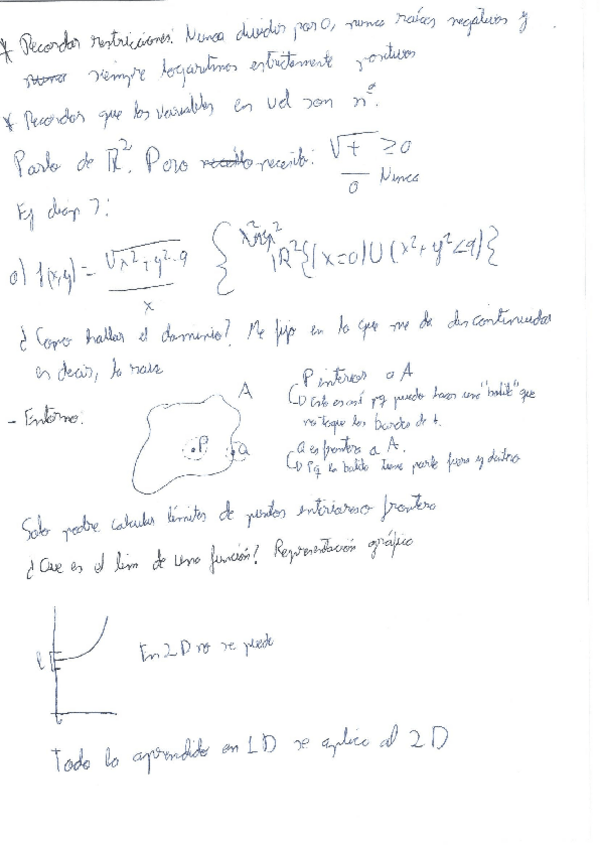 * Recordar restricciones: Nunca dividir por 0, nunca raíces negativas y
siempre logaritmos estrictamente positivos
* Recordar que las variables en son nº.
Parto de ℝ². Pero necesito: √+ ≥ 0
0 Nunca
Ej diap 7:
a) f(x,y) = √x²+y²-9 / x { ℝ²{(x=0)∪(x²+y²<9)}
¿Como hallar el dominio? Me fijo en lo que me da discontinuidad
es decir, la raiz
- Entorno:
A
P
Q
P interior a A
Esto es así pq puedo hacer una "bolita" que
no toque los bordes de A.
Q es frontera a A.
Pq la bolita tiene parte fuera y dentro
Solo podre calcular límites de puntos interiores o frontera
¿Que es el lim de una función? Representación gráfica
l
En 2D no se puede
Todo lo aprendido en 1D se aplica al 2D